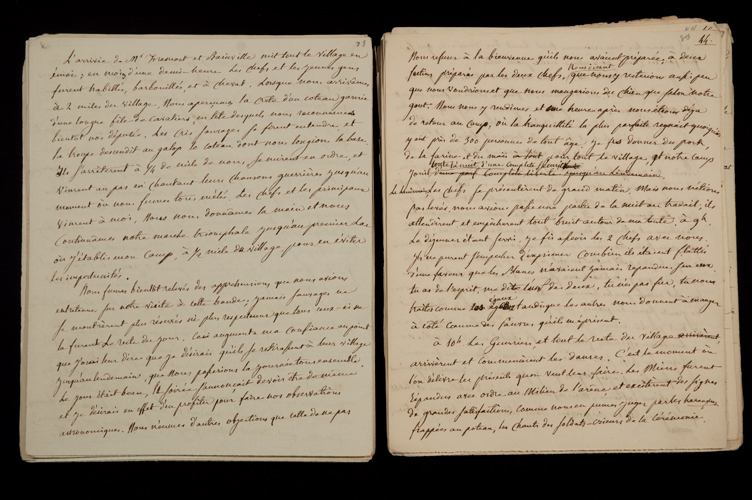 L'arrivée de Mr Fremont et Rainville mit tout le Village en
émoi; en moins d'une demie heure les Chefs et les jeunes gens
furent habillés, barbouillés, et à cheval. Lorsque nous arrivâmes
à 2 miles du village. Nous aperçumes la Crête d'un coteau garnie
d'une longue file de Cavaliers, en tête desquels nous reconnumes
bientôt nos députés. Les Cris Sauvages se firent entendre et
la troupe descendit au galop le coteau dont nous longions la base.
Ils s'arrêtèrent à 1/4 de mile de nous, se mirent en ordre, et
vinrent au pas en chantant leurs chansons guerrières jusqu'au
moment où nous fumes tous mêlés. Les chefs et les principaux
vinrent à moi, Nous nous donnâmes la main et nous
Continuâmes notre marche triomphale jusqu'au premier Lac
où j'établis mon Camp, à 1/2 mile du village pour en éviter
les importunités.
Nous fumes bientôt relevés des apprehensions que nous avions
entretenu sur notre visite à cette bande; jamais sauvages ne
se montrèrent plus réservés ni plus respectueux que tous ceux-ci ne
le furent le reste du jour. Ceci augmenta ma Confiance au point
que j'osai leur dire que je désirais qu'ils se retirassent à leur village
jusqu'au lendemain, que Nous passerions la journée toute ensemble.
Le jour était beau, la soirée s'annonçait devoir être de même
et je désirais en effet d'en profiter pour faire nos observations
astronomiques. Nous n'eumes d'autres objections que celle de ne pas
44.
Nous refuser à la bienvenue qu'ils nous avaient préparée, à deux
festins préparés par les deux Chefs, que nous y resterions aussi peu
que nous voudrions et que nous mangerions des chiens que selon notre
gout. Nous nous y rendimes et une heure après nous étions déjà
de retour au Camp, où la tranquillité la plus parfaite régnait quoiqu'il
y eut près de 300 personnes de tout âge. Je fis donner du pork,
de la farine et du mais à tout pour tout le village, et notre Camp
jouit
les Chefs se présentèrent de grand matin, Mais nous n'étions
pas levés, nous avions passé une partie de la nuit au travail, ils
attendirent et empêchèrent tout bruit autour de ma tente. à 9h.
Le déjeuner étant servi, je fis asseoir les 2 Chefs avec nous.
Ils ne purent s'empêcher d'exprimer Combien ils étaient flattés
d'une faveur que les blancs n'avaient jamais répandue sur eux.
tu as de l'esprit, me dit l'un des deux, tu n'es pas fier, tu nous
traites comme tes égaux tandis que les autres nous donnent à manger
à côté comme des pauvres qu'ils méprisent.
à 10h. Les Guerriers et tout le reste du Village
arrivèrent et commencèrent les danses. C'est le moment où
l'on délivre les présents qu'on veut leur faire. Les Miens furent
répandus avec ordre au Milieu de l'arène et excitèrent des signes
de grandes satisfactions, comme nous en pumes juger par les harangues
frappées au poteau, les chants des soldats-crieurs de la Cérémonie.